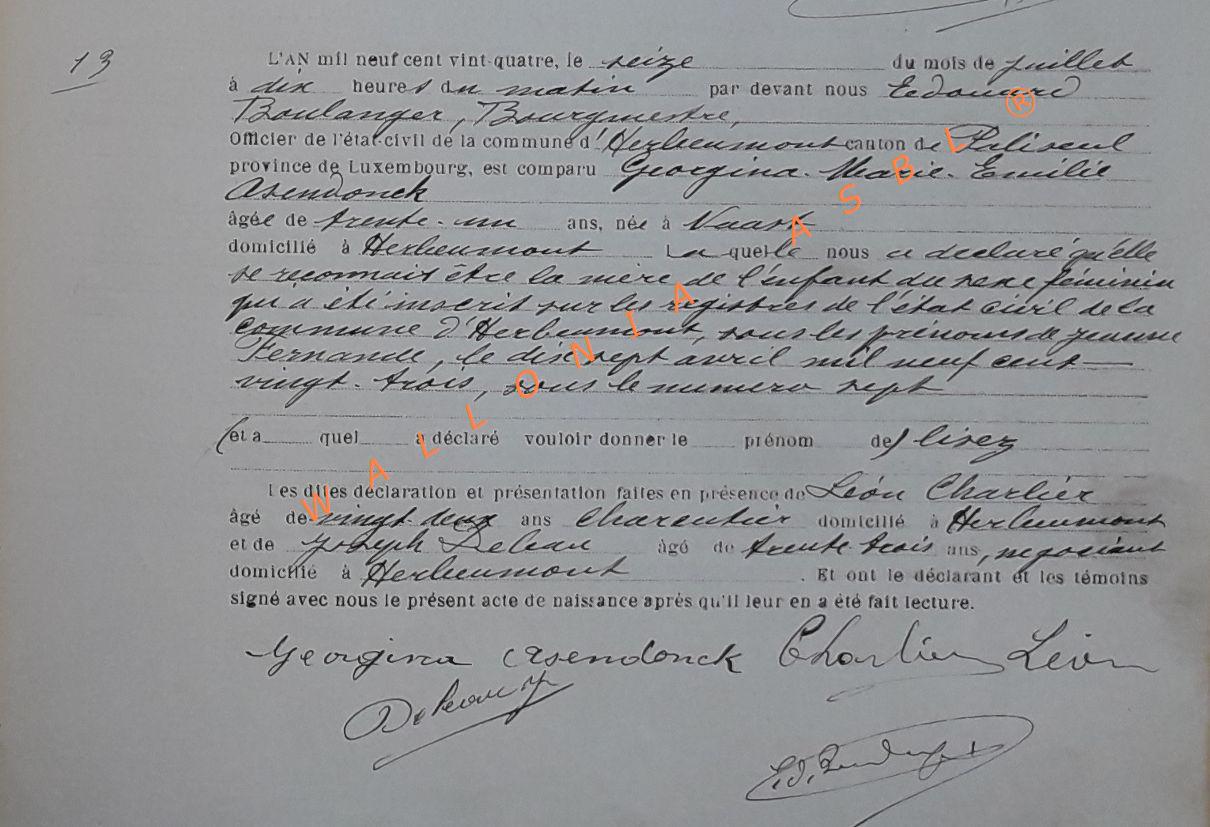 13
L'AN mil neuf cent vint-quatre, le seize du mois de juillet
à dix heures du matin par devant nous Edouard
Boulanger, Bourgmestre,
Officier de l'état-civil de la commune d'Herbeumont canton de Paliseul
province de Luxembourg, est comparu Georgina-Marie-Emilie
Asendonck
âgée de trente-un ans, née à
domicilié à Herbeumont La quelle nous a déclaré qu'elle
se reconnait être la mère de l'enfant du sexe féminin
qui a été inscrit sur les registres de l'état civil de la
commune d'Herbeumont, sous les prénoms de Jeanne
Fernande, le dix sept avril mil neuf cent
vingt-trois, sous le numero sept
(et a quel a déclaré vouloir donner le prénom de) lisez
Les dites déclaration et présentation faites en présence de Léon Charlier
âgé de vingt-deux ans domicilié à Herbeumont
et de Joseph âgé de trente-trois ans, negociant
domicilié à Herbeumont . Et ont le déclarant et les témoins
signé avec nous le présent acte de naissance après qu'il leur en a été fait lecture.
Georgina Asendonck Charlier Léon
WALLONIA ASBL ®